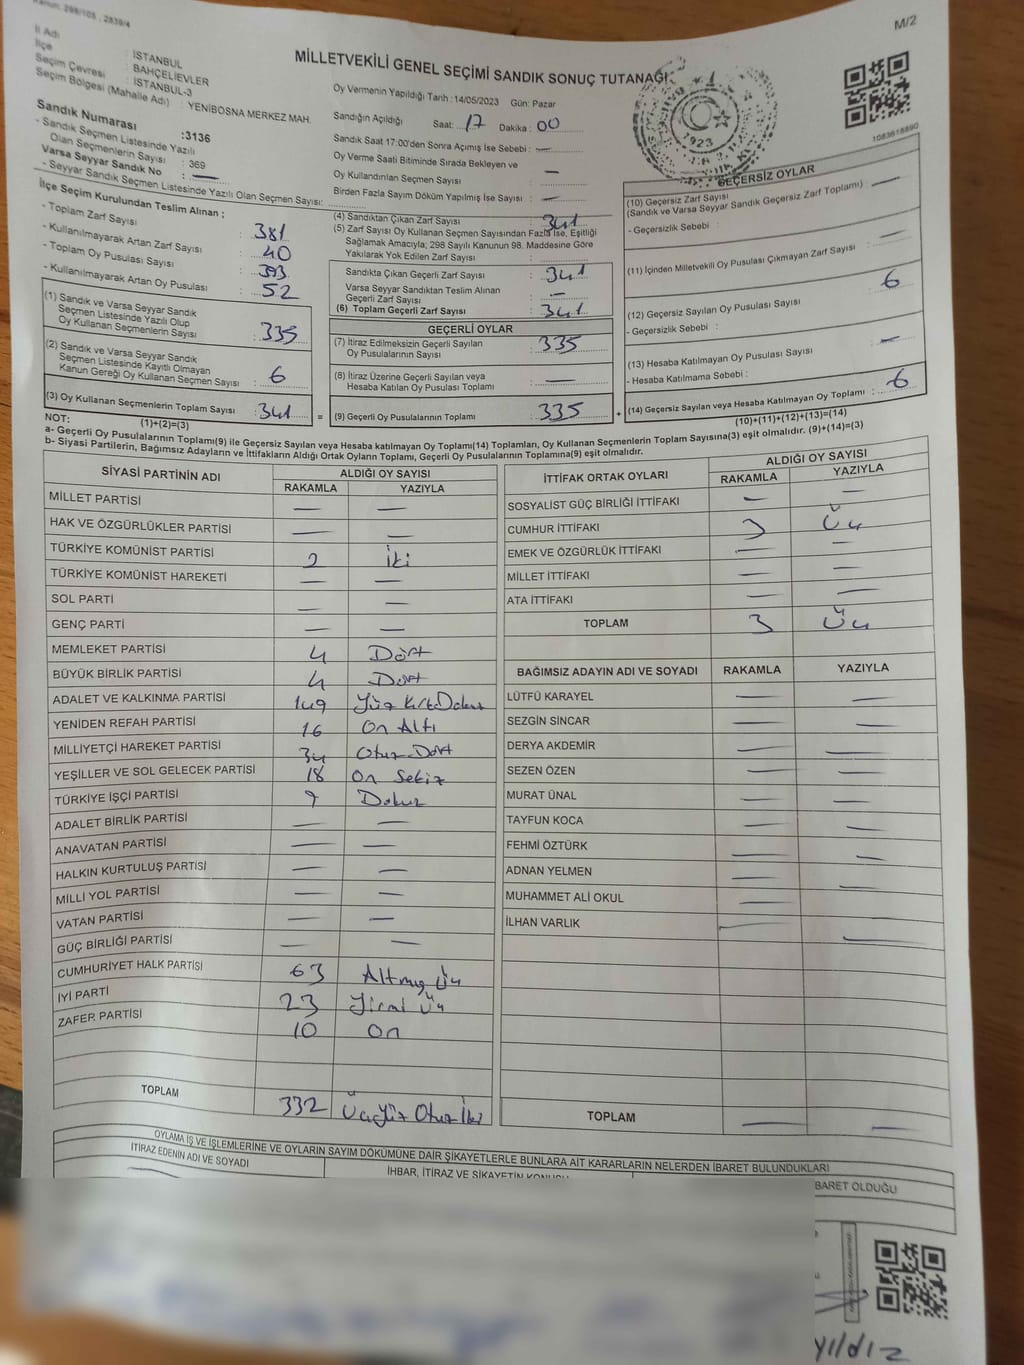 Kanun: 298/105 , 2839/4
M/2
MİLLETVEKİLİ GENEL SEÇİMİ SANDIK SONUÇ TUTANAĞI
İl Adı : İSTANBUL
İlçe : BAHÇELİEVLER
Seçim Çevresi : İSTANBUL-3
Seçim Bölgesi (Mahalle Adı) : YENİBOSNA MERKEZ MAH.
Sandık Numarası :3136
- Sandık Seçmen Listesinde Yazılı
Olan Seçmenlerin Sayısı : 369
Varsa Seyyar Sandık No : —
- Seyyar Sandık Seçmen Listesinde Yazılı Olan Seçmen Sayısı:
İlçe Seçim Kurulundan Teslim Alınan ;
- Toplam Zarf Sayısı : 381
- Kullanılmayarak Artan Zarf Sayısı : 40
- Toplam Oy Pusulası Sayısı : 393
- Kullanılmayarak Artan Oy Pusulası : 52
(1) Sandık ve Varsa Seyyar Sandık
Seçmen Listesinde Yazılı Olup
Oy Kullanan Seçmenlerin Sayısı : 335
(2) Sandık ve Varsa Seyyar Sandık
Seçmen Listesinde Kayıtlı Olmayan
Kanun Gereği Oy Kullanan Seçmen Sayısı : 6
(3) Oy Kullanan Seçmenlerin Toplam Sayısı : 341 =
(1)+(2)=(3)
Oy Vermenin Yapıldığı Tarih :14/05/2023 Gün: Pazar
Sandığın Açıldığı Saat: 17 Dakika : 00
Sandık Saat 17:00'den Sonra Açımış İse Sebebi : —
Oy Verme Saati Bitiminde Sırada Bekleyen ve
Oy Kullandırılan Seçmen Sayısı : —
Birden Fazla Sayım Döküm Yapılmış İse Sayısı : —
(4) Sandıktan Çıkan Zarf Sayısı : 341
(5) Zarf Sayısı Oy Kullanan Seçmen Sayısından Fazla İse, Eşitliği
Sağlamak Amacıyla; 298 Sayılı Kanunun 98. Maddesine Göre
Yakılarak Yok Edilen Zarf Sayısı :
Sandıkta Çıkan Geçerli Zarf Sayısı : 341
Varsa Seyyar Sandıktan Teslim Alınan
Geçerli Zarf Sayısı : —
(6) Toplam Geçerli Zarf Sayısı : 341
GEÇERLİ OYLAR
(7) İtiraz Edilmeksizin Geçerli Sayılan
Oy Pusulalarının Sayısı : 335
(8) İtiraz Üzerine Geçerli Sayılan veya
Hesaba Katılan Oy Pusulası Toplamı : —
(9) Geçerli Oy Pusulalarının Toplamı : 335 +
1923
1083618890
GEÇERSİZ OYLAR
(10) Geçersiz Zarf Sayısı
(Sandık ve Varsa Seyyar Sandık Geçersiz Zarf Toplamı) : —
- Geçersizlik Sebebi :
(11) İçinden Milletvekili Oy Pusulası Çıkmayan Zarf Sayısı : —
(12) Geçersiz Sayılan Oy Pusulası Sayısı : 6
- Geçersizlik Sebebi :
(13) Hesaba Katılmayan Oy Pusulası Sayısı : —
- Hesaba Katılmama Sebebi :
(14) Geçersiz Sayılan veya Hesaba Katılmayan Oy Toplamı : 6
(10)+(11)+(12)+(13)=(14)
NOT:
a- Geçerli Oy Pusulalarının Toplamı(9) ile Geçersiz Sayılan veya Hesaba katılmayan Oy Toplamı(14) Toplamları, Oy Kullanan Seçmenlerin Toplam Sayısına(3) eşit olmalıdır. (9)+(14)=(3)
b- Siyasi Partilerin, Bağımsız Adayların ve İttifakların Aldığı Ortak Oyların Toplamı, Geçerli Oy Pusulalarının Toplamına(9) eşit olmalıdır.
SİYASİ PARTİNİN ADI ALDIĞI OY SAYISI
RAKAMLA YAZIYLA
MİLLET PARTİSİ — —
HAK VE ÖZGÜRLÜKLER PARTİSİ — —
TÜRKİYE KOMÜNİST PARTİSİ 2 iki
TÜRKİYE KOMÜNİST HAREKETİ — —
SOL PARTİ — —
GENÇ PARTİ — —
MEMLEKET PARTİSİ 4 Dört
BÜYÜK BİRLİK PARTİSİ 4 Dört
ADALET VE KALKINMA PARTİSİ 149 Yüz Kırk Dokuz
YENİDEN REFAH PARTİSİ 16 On Altı
MİLLİYETÇİ HAREKET PARTİSİ 34 Otuz Dört
YEŞİLLER VE SOL GELECEK PARTİSİ 18 On Sekiz
TÜRKİYE İŞÇİ PARTİSİ 9 Dokuz
ADALET BİRLİK PARTİSİ — —
ANAVATAN PARTİSİ — —
HALKIN KURTULUŞ PARTİSİ — —
MİLLİ YOL PARTİSİ — —
VATAN PARTİSİ — —
GÜÇ BİRLİĞİ PARTİSİ — —
CUMHURİYET HALK PARTİSİ 63 Altmış Üç
İYİ PARTİ 23 Yirmi Üç
ZAFER PARTİSİ 10 On
TOPLAM 332 Üçyüz Otuz İki
İTTİFAK ORTAK OYLARI ALDIĞI OY SAYISI
RAKAMLA YAZIYLA
SOSYALİST GÜÇ BİRLİĞİ İTTİFAKI — —
CUMHUR İTTİFAKI 3 Üç
EMEK VE ÖZGÜRLÜK İTTİFAKI — —
MİLLET İTTİFAKI — —
ATA İTTİFAKI — —
TOPLAM 3 Üç
BAĞIMSIZ ADAYIN ADI VE SOYADI RAKAMLA YAZIYLA
LÜTFÜ KARAYEL — —
SEZGİN SİNCAR — —
DERYA AKDEMİR — —
SEZEN ÖZEN — —
MURAT ÜNAL — —
TAYFUN KOCA — —
FEHMİ ÖZTÜRK — —
ADNAN YELMEN — —
MUHAMMET ALİ OKUL — —
İLHAN VARLIK — —
TOPLAM — —
OYLAMA İŞ VE İŞLEMLERİNE VE OYLARIN SAYIM DÖKÜMÜNE DAİR ŞİKAYETLERLE BUNLARA AİT KARARLARIN NELERDEN İBARET BULUNDUKLARI
İTİRAZ EDENİN ADI VE SOYADI
İHBAR, İTİRAZ VE ŞİKAYETİN KONUSU
BARET OLDUĞU
yıldız